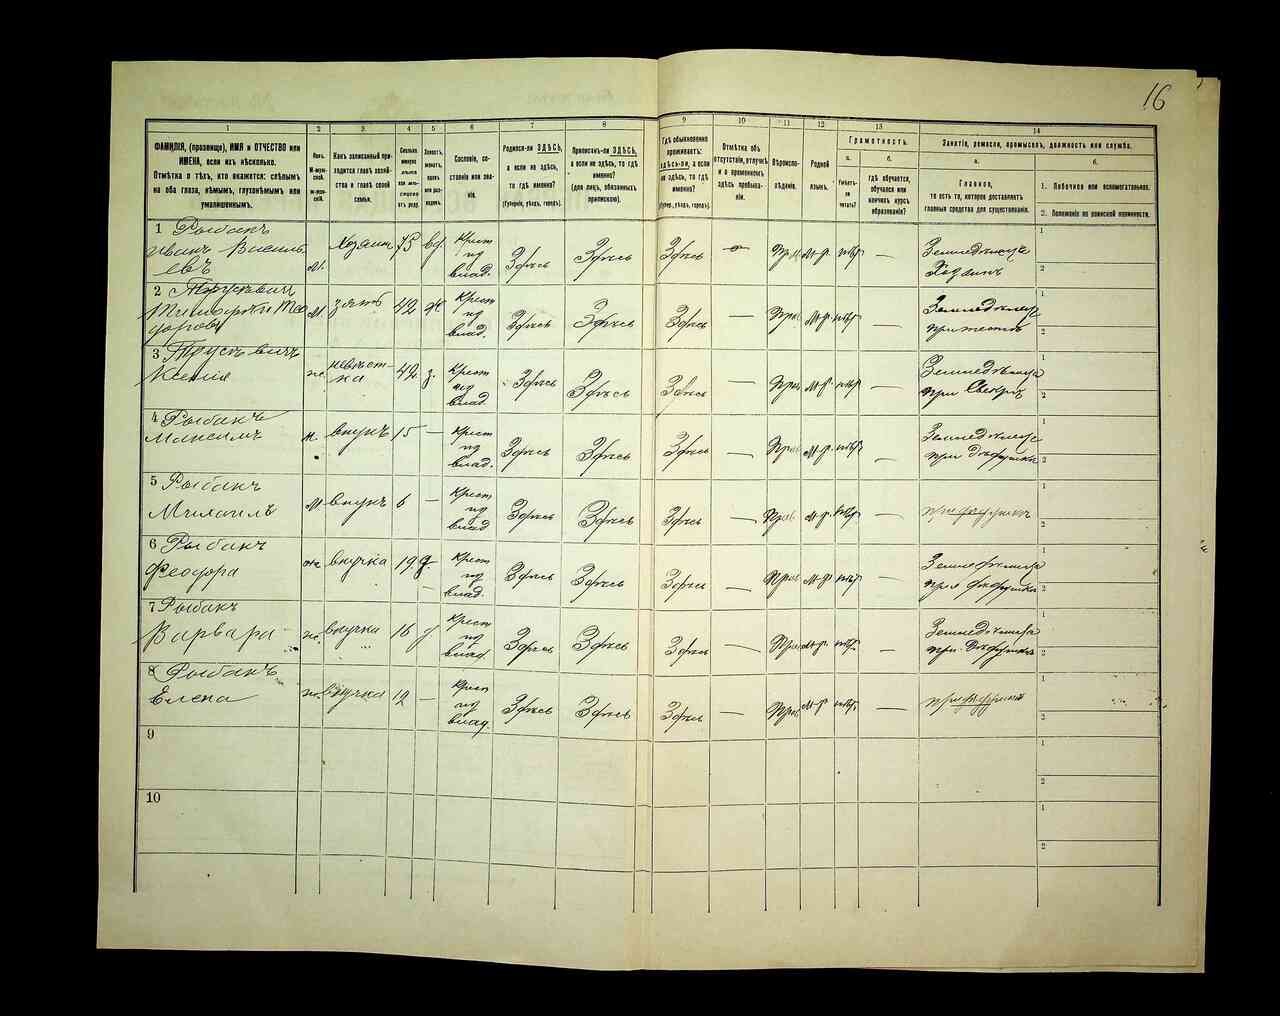 16
1 2 3 4 5 6 7 8 9 10 11 12 13 14
ФАМИЛІЯ, (прозвище), ИМЯ и ОТЧЕСТВО или
ИМЕНА, если ихъ нѣсколько.
Отмѣтка о тѣхъ, кто окажется: слѣпымъ
на оба глаза, нѣмымъ, глухонѣмымъ или
умалишеннымъ.
Полъ.
М-мужской.
Ж-женскій.
Какъ записанный приходится
главѣ хозяйства
и главѣ своей
семьи.
Сословіе, состояніе
или званіе.
Родился-ли ЗДѢСЬ,
а если не здѣсь,
то гдѣ именно?
(Губернія, уѣздъ, городъ).
Приписанъ-ли ЗДѢСЬ,
а если не здѣсь, то гдѣ
именно?
(для лицъ, обязанныхъ
припискою).
Гдѣ обыкновенно
проживаетъ:
здѣсь-ли, а если
не здѣсь, то гдѣ
именно?
(Губер., уѣздъ, городъ).
Отмѣтка объ
отсутствіи, отлучкѣ
и о временномъ
здѣсь пребываніи.
Вѣроисповѣданіе.
Родной
языкъ.
Грамотность.
а.
Умѣетъ-ли
читать?
б.
гдѣ обучается,
обучался или
кончилъ курсъ
образованія?
Занятіе, ремесло, промыселъ, должность или служба.
а.
Главное,
то есть то, которое доставляетъ
главныя средства для существованія.
б.
1. Побочное или вспомогательное.
2. Положеніе по воинской повинности.
1 Рыбакъ
Иванъ Василь
евъ
м. Хозяинъ 75 вд.
Крест
из
влад.
Здѣсь Здѣсь Здѣсь — Прав м-р. нѣт —
Земледѣлецъ
Хозяинъ
1
2
2 Трускевич
Тимофей Тео
доровъ
м. зять 42 ж
Крест
из
влад.
Здѣсь Здѣсь Здѣсь — Прав м-р. нѣт —
Земледѣлецъ
при тестѣ
1
2
3 Трускевичъ
Ксенія
ж. невѣст-
ка 42 з.
Крест
из
влад.
Здѣсь Здѣсь Здѣсь — Прав м-р. нѣт —
Земледѣлица
при Свекрѣ
1
2
4 Рыбакъ
Максимъ
м. внукъ 15 —
Крест
из
влад.
Здѣсь Здѣсь Здѣсь — Прав м-р. нѣт —
Земледѣлецъ
при Дѣдушкѣ
1
2
5 Рыбакъ
Михаилъ
м. внукъ 6 —
Крест
из
влад
Здѣсь Здѣсь Здѣсь — Прав м-р. нѣт —
при дѣдушкѣ
1
2
6 Рыбакъ
Феодора
ж. внучка 19 д
Крест
из
влад.
Здѣсь Здѣсь Здѣсь — Прав м-р. нѣт —
Земледѣлица
при дѣдушкѣ
1
2
7 Рыбакъ
Варвара
ж. внучка 16 д
Крест
из
влад.
Здѣсь Здѣсь Здѣсь — Прав м-р. нѣт —
Земледѣлица
при Дѣдушкѣ
1
2
8 Рыбакъ
Елена
ж. внучка 12 —
Крест
из
влад.
Здѣсь Здѣсь Здѣсь — Прав м-р. нѣт —
при дѣдушкѣ
1
2
9
1
2
10
1
2